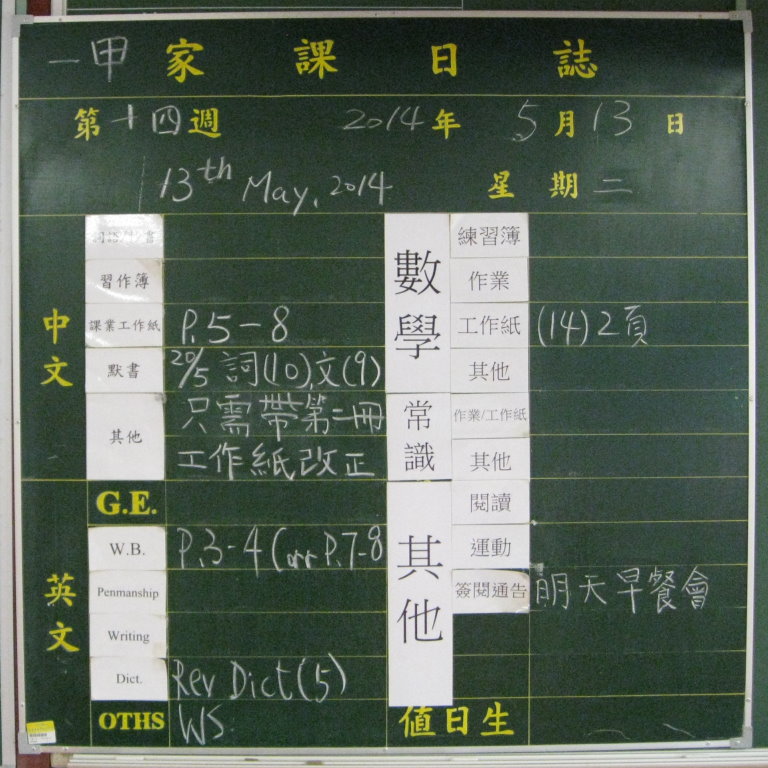 一甲 家課日誌
第十四週 2014年 5月13日
13th May, 2014 星期二
中文
習作簿
課業工作紙 P.5-8
默書 20/5 詞(10),文(9)
其他 只需帶第二冊
工作紙改正
英文
G.E.
W.B. P.3-4 Corr P.7-8
Penmanship
Writing
Dict. Rev Dict(5)
OTHS WS.
數學
練習簿
作業
工作紙 (14)2頁
其他
常識
作業/工作紙
其他
其他
閱讀
運動
簽閱通告 明天早餐會
值日生